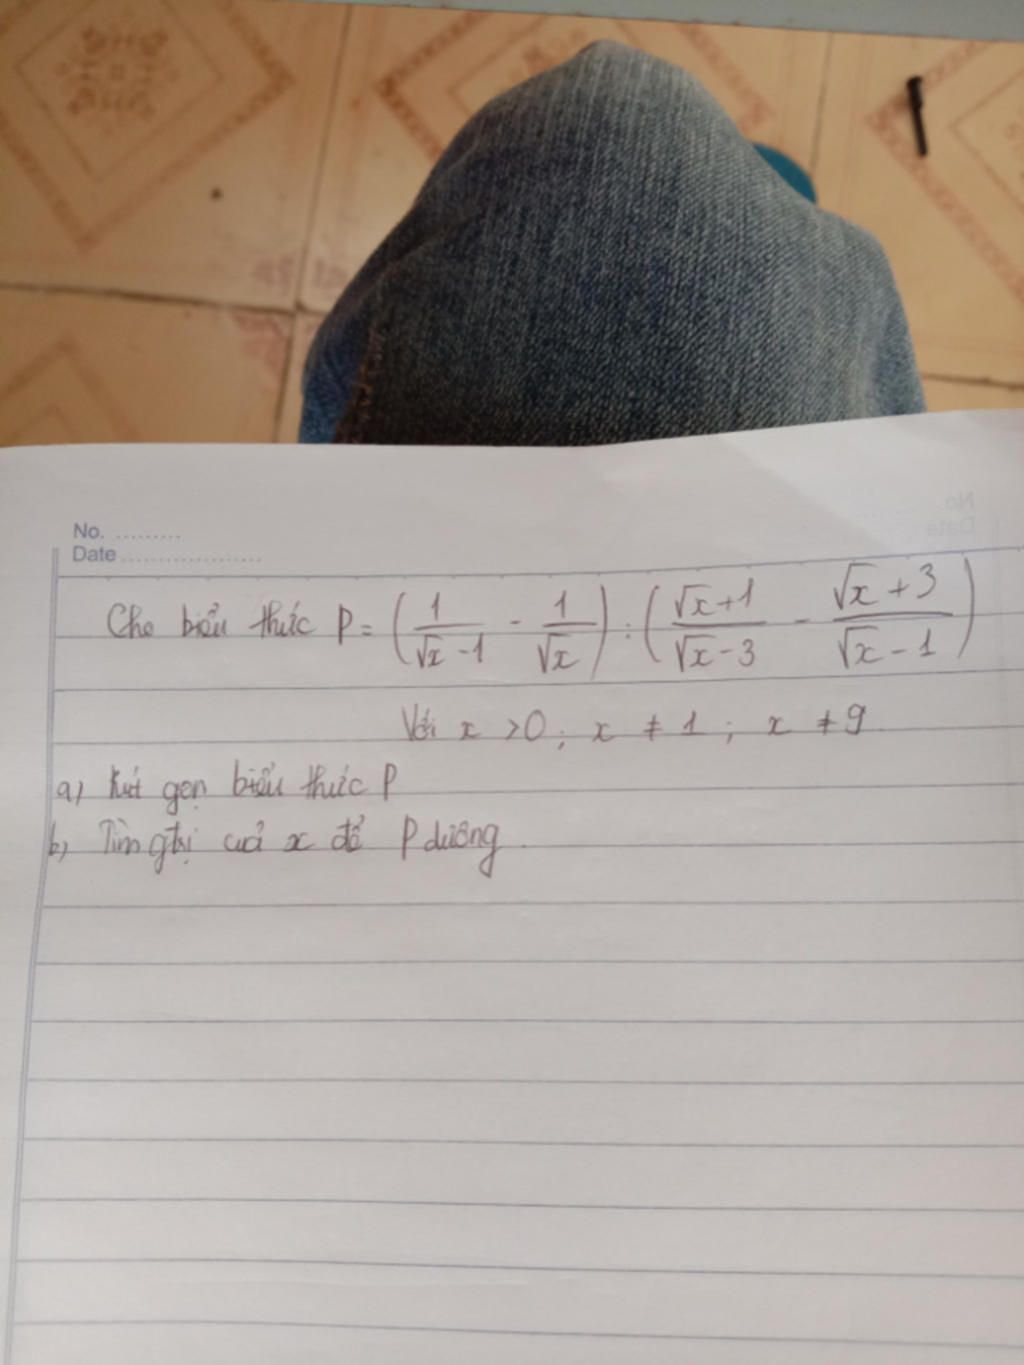 No. .........
Date ...................
Cho biểu thức P = (1/(√x - 1) - 1/√x) : ((√x + 1)/(√x - 3) - (√x + 3)/(√x - 1))
Với x > 0 ; x ≠ 1 ; x ≠ 9
a) Rút gọn biểu thức P
b) Tìm gtrị cuả x để P dương.